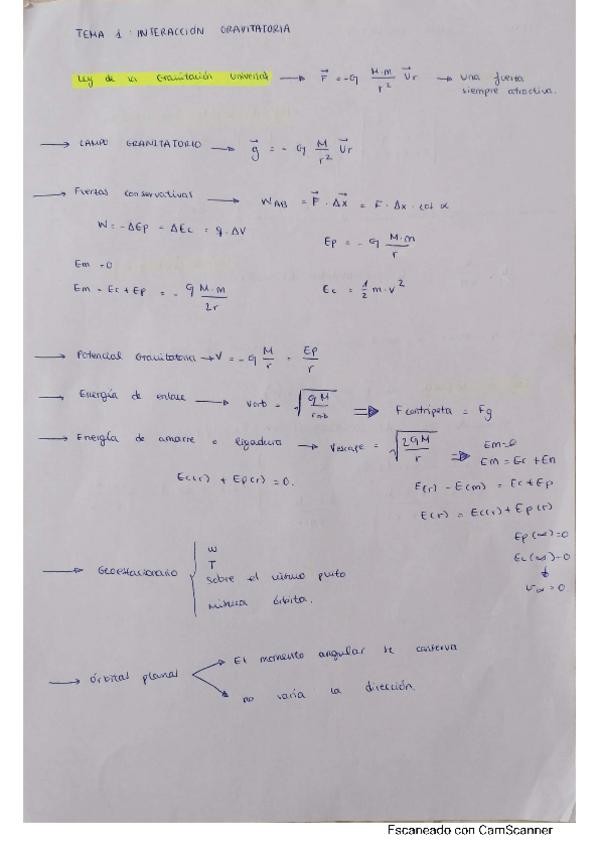 TEMA 1: INTERACCIÓN GRAVITATORIA
Ley de la Gravitación Universal → F⃗ = -G M·m/r² U⃗r → una fuerza
siempre atractiva.
→ CAMPO GRAVITATORIO → g⃗ = -G M/r² U⃗r
→ Fuerzas conservativas → WAB = F⃗ · Δx⃗ = F · Δx · cos α
W = -ΔEp = ΔEc = q·ΔV
Ep = -G M·m/r
Em = 0
Em = Ec + Ep = -G M·m/2r
Ec = 1/2 m·v²
→ Potencial Gravitatorio → V = -G M/r = Ep/r
→ Energía de enlace → Vorb = √(GM/rorb) ⇒ F centrípeta = Fg
→ Energía de amarre o ligadura → Vescape = √(2GM/r) ⇒ Em=0
Em = Ec + En
Ec(r) + Ep(r) = 0.
E(r) - E(m) = Ec + Ep
E(r) = Ec(r) + Ep(r)
Ep(∞)=0
Ec(∞)=0
↓
V∞ = 0
→ Geoestacionario
W
T
sobre el mismo punto
misma órbita.
→ órbitas planas
El momento angular se conserva
no varía la dirección.
Escaneado con CamScanner